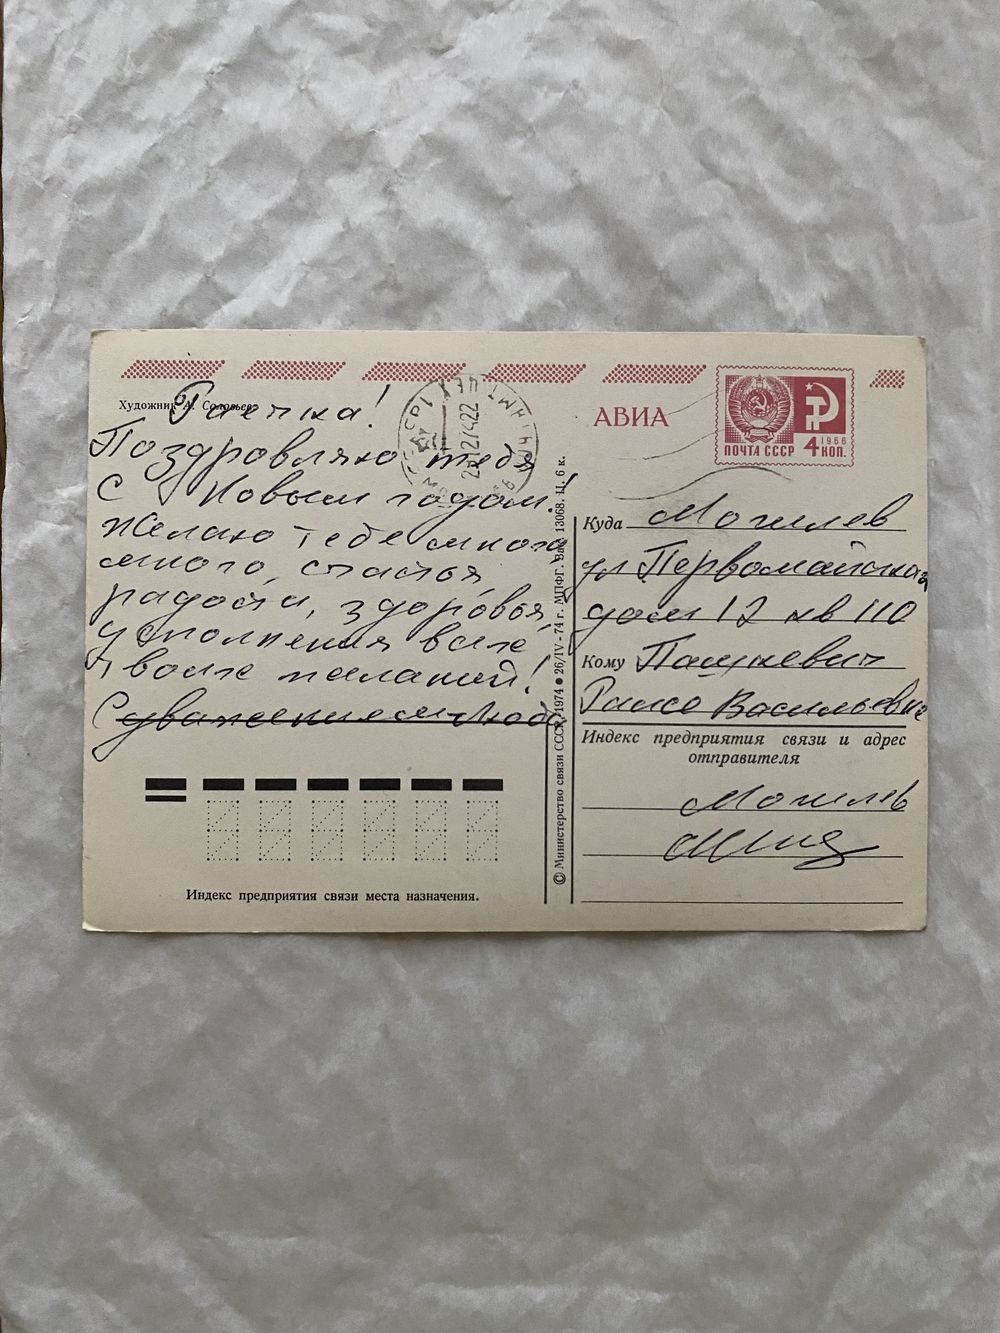 Художник А. Соловьев
Раечка!
Поздравляю тебя
с Новым годом!
Желаю тебе много
много, счастья
радости, здоровья,
исполнения всех
твоих желаний!
С уважением Люба
Индекс предприятия связи места назначения.
© Министерство связи СССР, 1974 ● 26/IV-74 г. МПФГ. Зак. 13068. Ц. 6 к.
АВИА
ПОЧТА СССР 4 КОП.
1966
Куда Могилев
ул Первомайская
дом 12 кв 110
Кому Пашкевич
Раисе Васильевне
Индекс предприятия связи и адрес
отправителя
Могилев